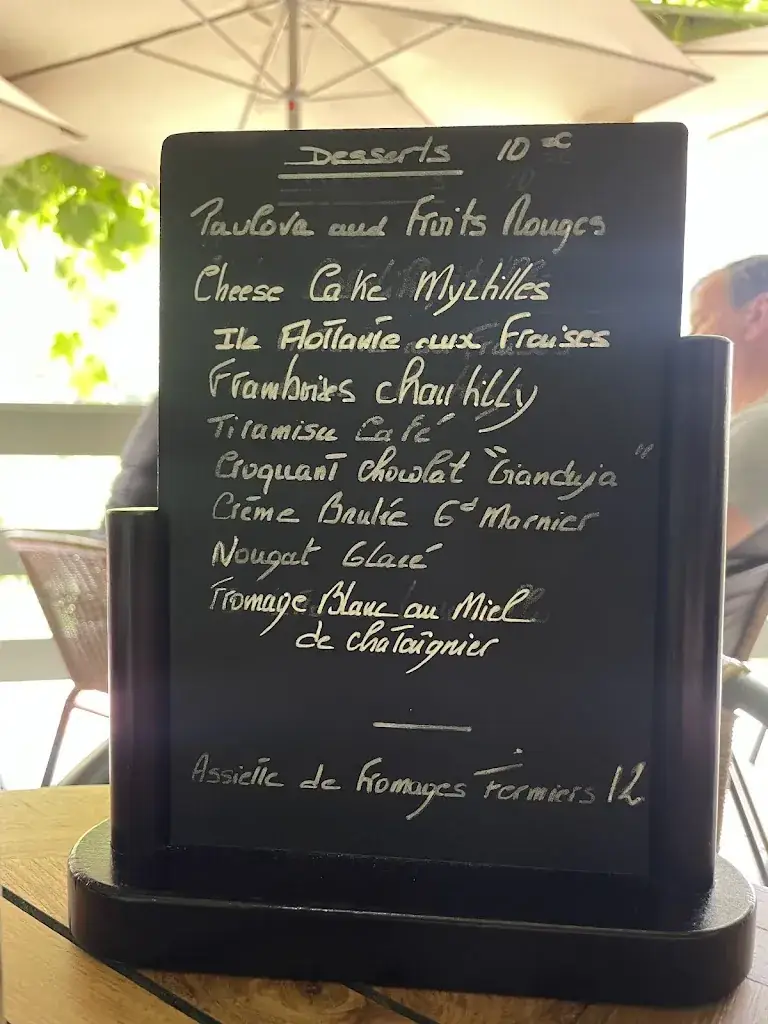 Desserts 10 €
Pavlova aux Fruits Rouges
Cheese Cake Myrtilles
Ile Flottante aux Fraises
Framboises chantilly
Tiramisu Café
Croquant chocolat "Gianduja"
Crème Brulée Gd Marnier
Nougat Glacé
Fromage Blanc au Miel
de chataîgnier
Assiette de Fromages Fermiers 12